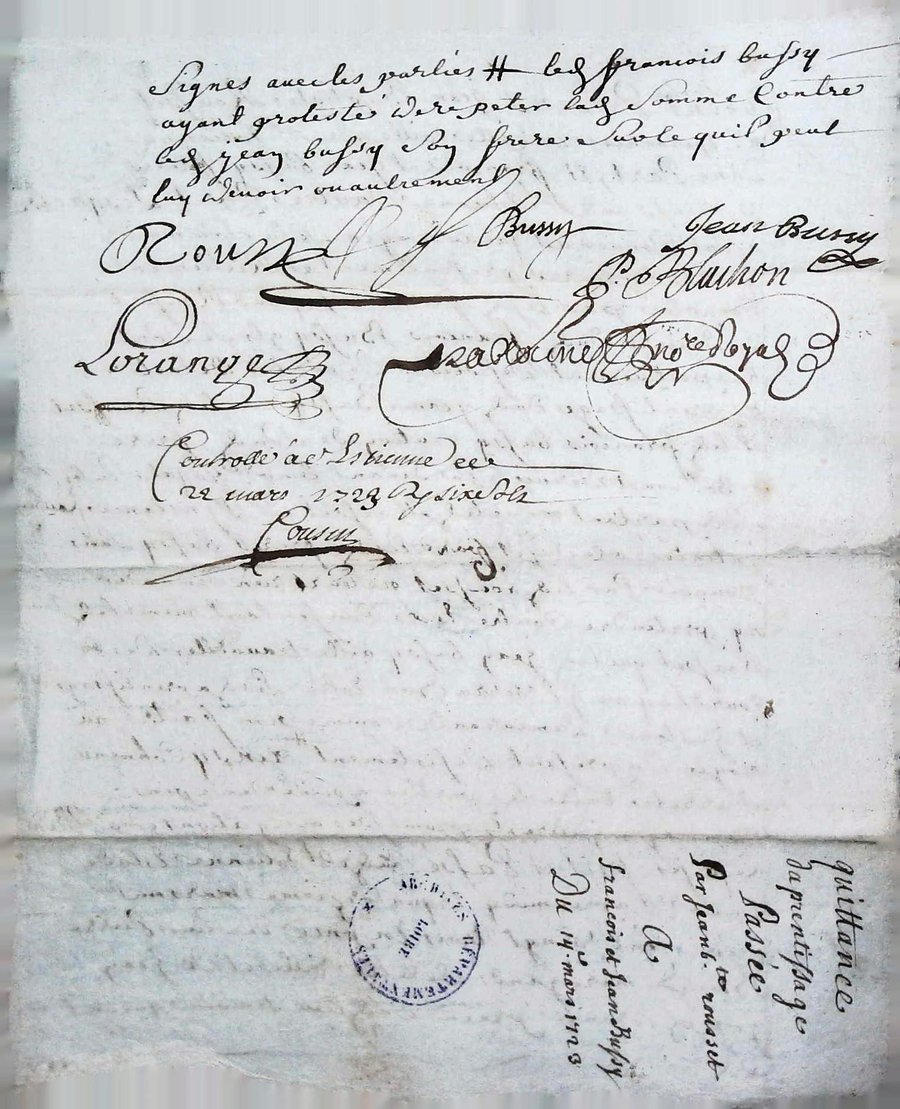 Signes avec les parties # led francois bussy
ayant protesté de repeter lad somme Contre
led jean bussy son frere Sur le quil peut
luy devoir ou autrement
Rousset
Bussy
Jean Bussy
P. Bluchon
Lorange
nore Royal
Controllé a St Estienne ce
22 mars 1723 R six sols
Cousin
quittance
daprentissage
Passée
Par Jean bte rousset
A
francois et Jean Bussy
Du 14e mars 1723
ARCHIVES DÉPARTEMENTALES
LOIRE